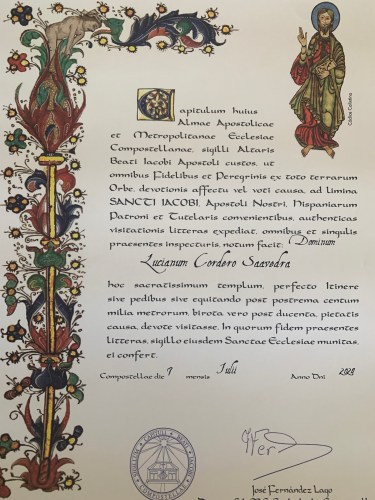 Capitulum huius
Almae Apostolicae
et Metropolitanae Ecclesiae
Compostellanae, sigilli Altaris
Beati Iacobi Apostoli custos, ut
omnibus Fidelibus et Peregrinis ex toto terrarum
Orbe, devotionis affectu vel voti causa, ad limina
SANCTI IACOBI, Apostoli Nostri, Hispaniarum
Patroni et Tutelaris convenientibus, authenticas
visitationis litteras expediat, omnibus et singulis
praesentes inspecturis, notum facit: Dominum
Lucianum Cordero Saavedra
hoc sacratissimum templum, perfecto Itinere
sive pedibus sive equitando post postrema centum
milia metrorum, birota vero post ducenta, pietatis
causa, devote visitasse. In quorum fidem praesentes
litteras, sigillo eiusdem Sanctae Ecclesiae munitas,
ei confert.
Compostellae die 9 mensis Iulii Anno Dni
José Fernández Lago
Codex Calixtinus